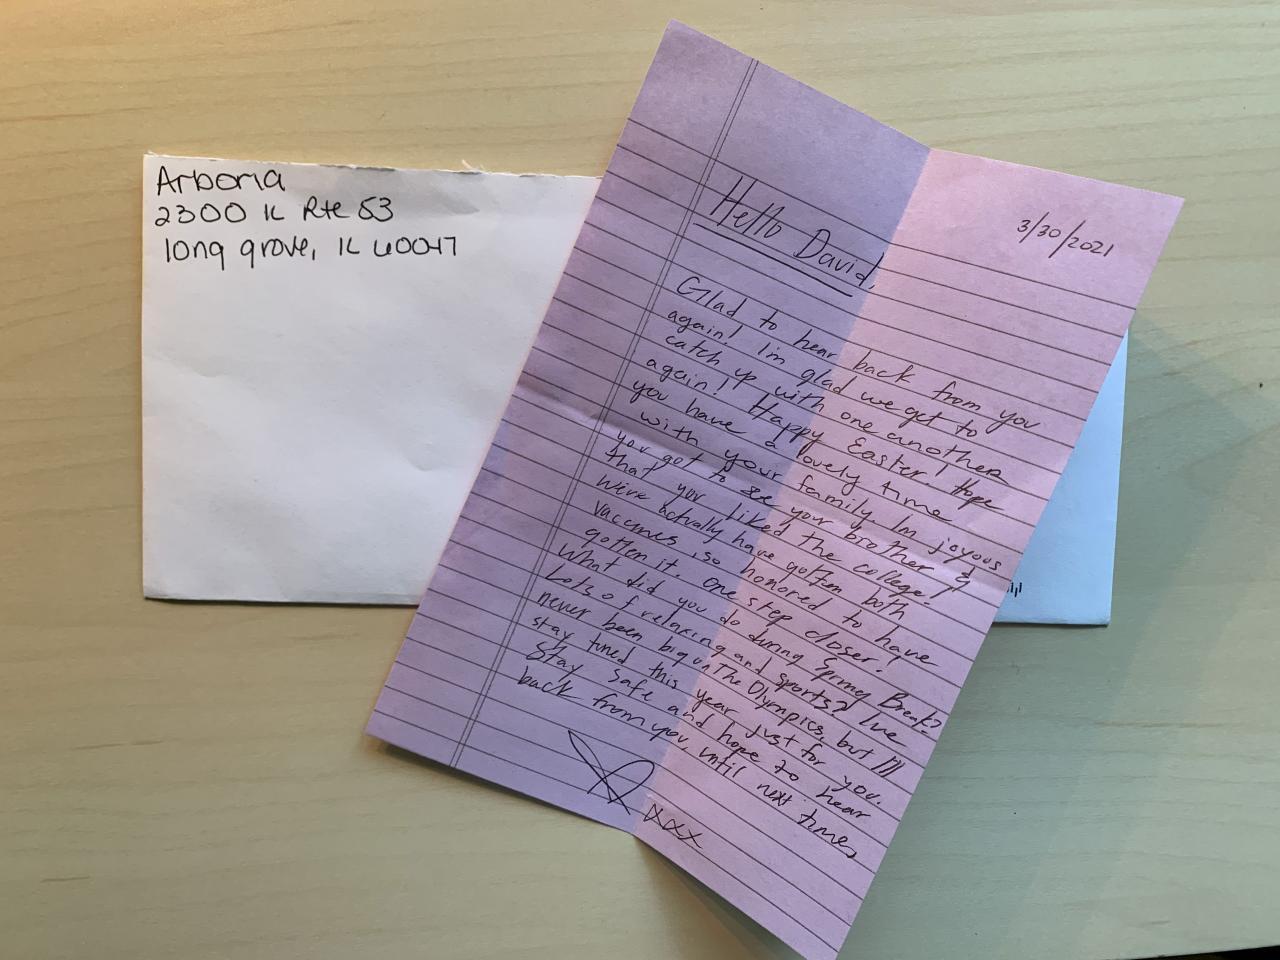 Arboria
2300 IL Rte 53
long grove, IL 60047
3/30/2021
Hello David,
Glad to hear back from you
again! I'm glad we get to
catch up with one another
again! Happy Easter! Hope
you have a lovely time
with your family. Im joyous
you got to see your brother &
that you liked the college!
We've actually have gotten both
vaccines, so honored to have
gotten it. One step closer!
What did you do during Spring Break?
Lots of relaxing and sports? I've
never been big on The Olympics, but I'll
stay tuned this year just for you.
Stay safe and hope to hear
back from you, until next time,
xxx